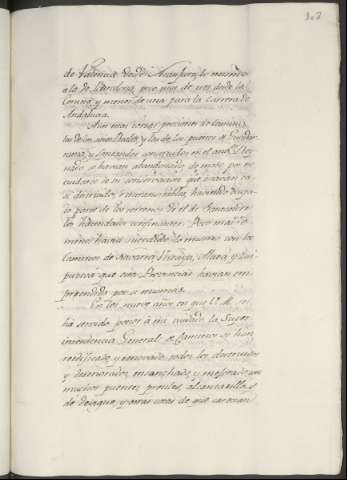 de Valencia desde Aranjuez, lo mismo
a la de Barcelona, poco mas de una desde la
Coruña, y menos de una para la carrera de
Andalucia.
A las mas obras precisas de Caminos
de los años Reales, y los de los puertos de Guadar
rama, y Fonfria executados en el ant.r Rey
nado se havian abandonado de modo, por no
cuidarse de su conservacion que estavan ca
si destruidos, e intransitables, haviendose
do parte de los terrenos de el
los Hacendados confinantes. Poco mas o
menos havia sucedido lo mismo con los
Caminos de Navarra, Vizcaya, Alava, y Gui
puzcoa que estas Provincias havian em
prendido por si mismas.
En los nueve años en que V. M. se
ha servido poner à mi cuidado la Super
intendencia General de Caminos se han
rectificado, y renovado todos los destruidos
y deteriorados, ensanchado, y mejorado con
muchos puentes, pretiles, alcantarillas,
de desague, y otras obras de que carecian